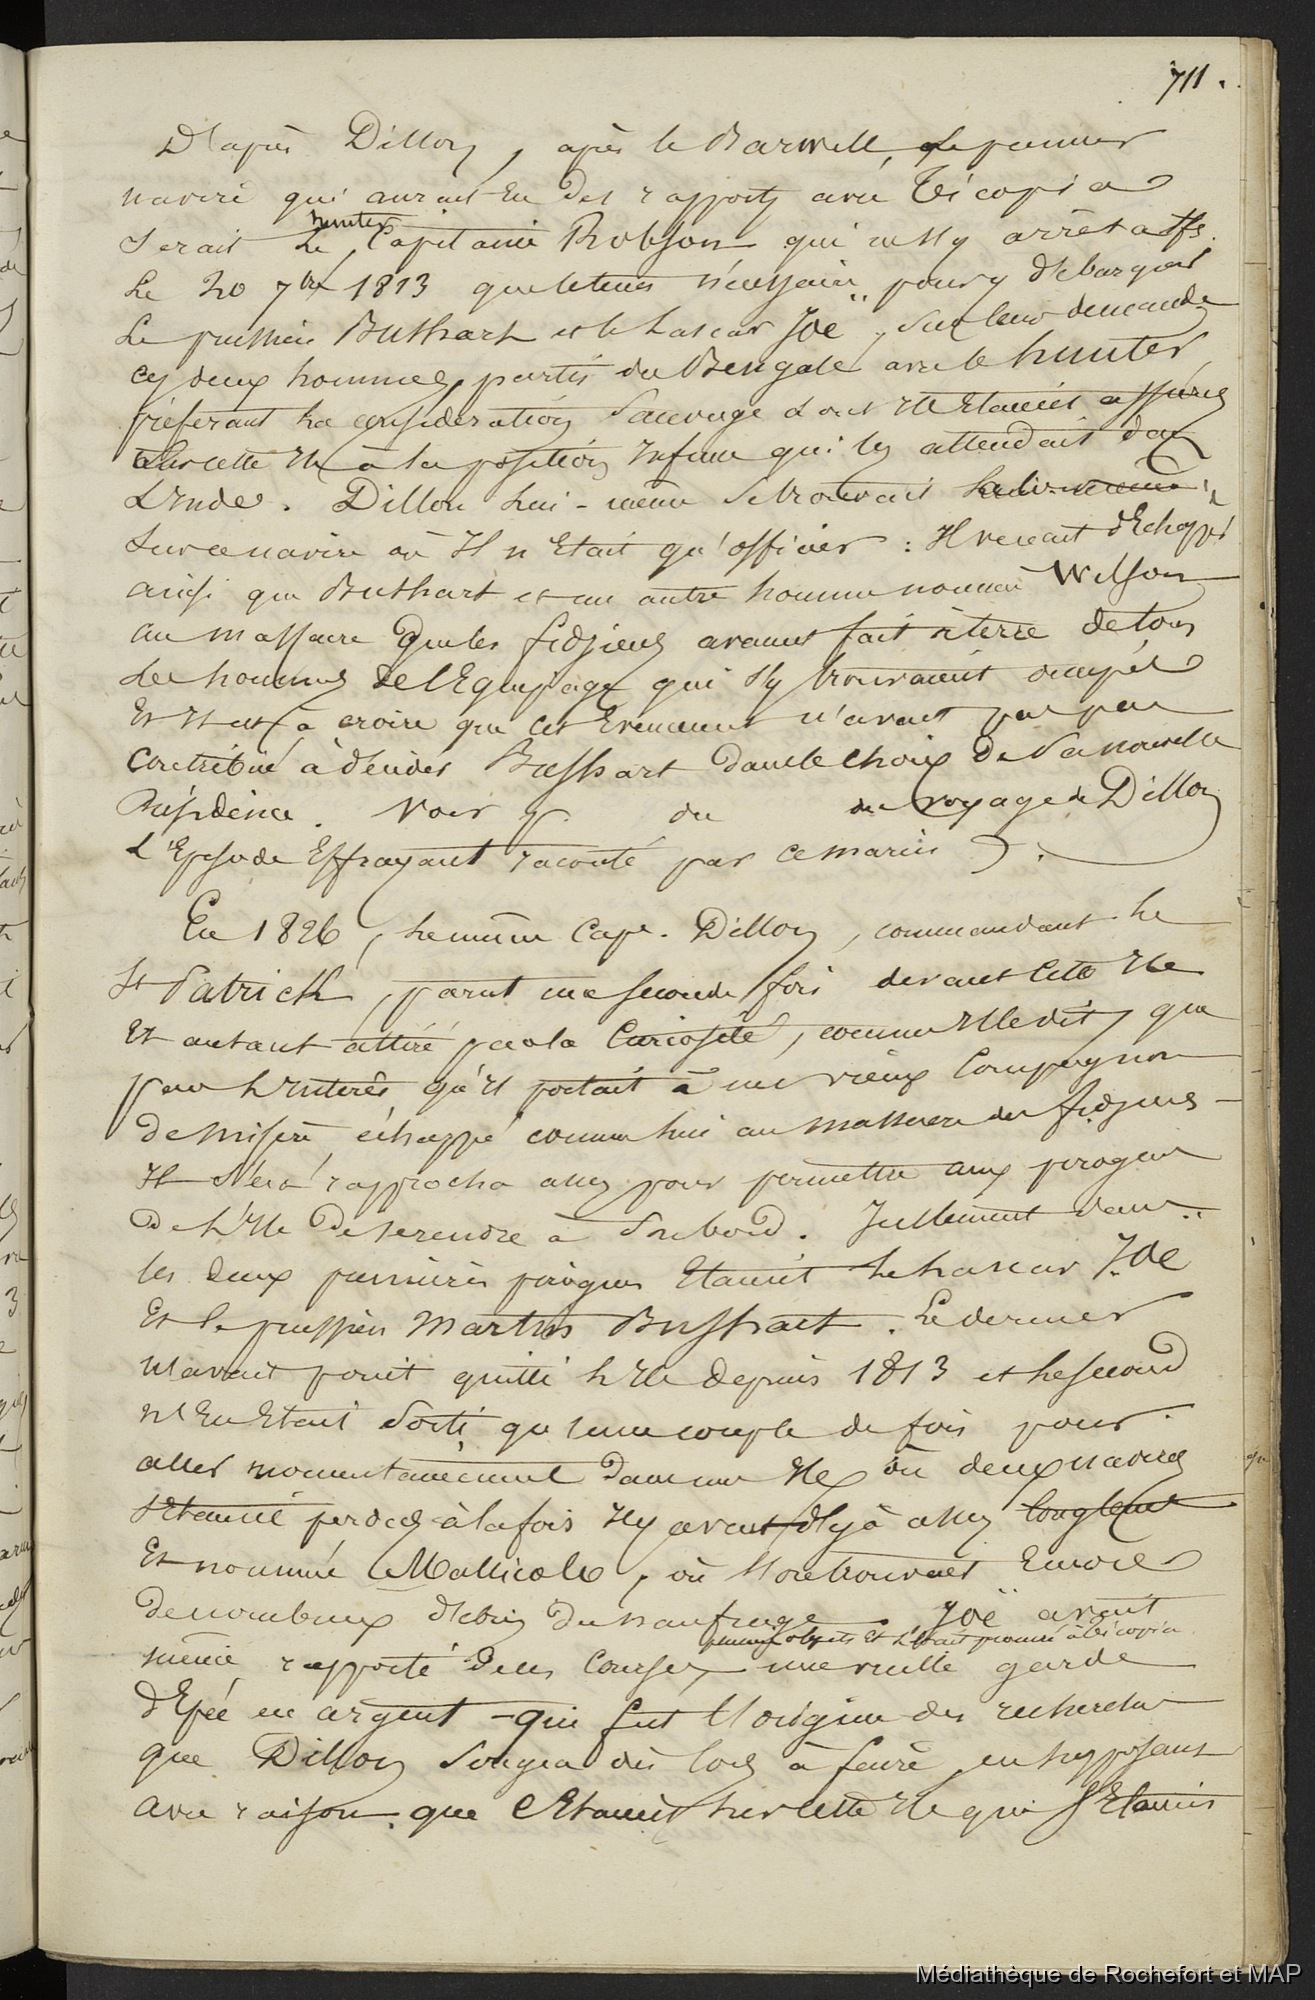 711.
D'après Dillon, après le Barwell, le premier
navire qui aurait eu des rapports avec Ticopia
hunter
serait le Capitaine Robson qui ne s'y arrêta
le 20 7bre 1813 que le tems nécessaire pour y débarquer
le prussien Bushart et le Lascar Joë, sur leur demande
ces deux hommes, partis du Bengale avec le hunter
préférant la considération sauvage dont ils étaient assurés
sur cette Ile à la position infime qui les attendait dans
L'Inde. Dillon lui-même se trouvait
sur ce navire où Il n'Etait qu'officier : Il venait d'Echapper
ainsi que Bushart et un autre homme nommé Wilson
au massacre que les fidjiens avaient fait à terre de tous
les hommes de l'Equipage qui s'y trouvaient occupés
Et Il est à croire que cet Evenement n'avait pas peu
contribué à décider Bushart dans le choix de sa nouvelle
Résidence. Voir p. du du voyage de Dillon
L'Episode Effrayant raconté par ce marin ).
En 1826, le même Cape. Dillon, commandant le
St Patrick, parut une seconde fois devant cette Ile
Et autant attiré par la Curiosité, comme Il le dit, que
par L'Interêt qu'Il portait à un vieux Compagnon
de misère, échappé comme lui au massacre des fidjiens
Il s'en rapprocha assez pour permettre aux pirogues
de L'Ile de se rendre à son bord. Justement dans
les deux premières pirogues Etaient le Lascar Joë
Et le prussien Martin Bushart. Le dernier
n'avait point quitté L'Ile depuis 1813 et le second
n'En Etait sorti qu'une couple de fois pour
aller momentanément dans une Ile où deux navires
s'Etaient perdus à la fois Il y avait déjà assez longtems
Et nommée Mallicolo, où l'on trouvait Encore
de nombreux débris du naufrage. Joë avait
plusieurs objets Et s'était procuré à Ticopia
même rapporté de ses Courses, une vieille garde
d'Epée en argent - qui fut l'origine des recherches
que Dillon songea dès lors à faire, en supposant
avec raison que c'Etait sur cette Ile que s'Etaient
Médiathèque de Rochefort et MAP